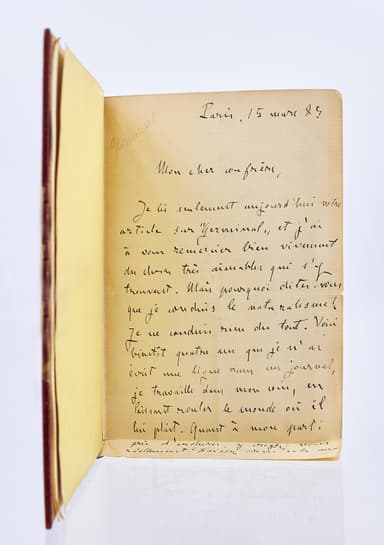 Germinal
Paris, 15 mars 85
Mon cher confrère,
Je lis seulement aujourd'hui votre
article sur "Germinal", et j'ai
à vous remercier bien vivement
des choses très aimables qui s'y
trouvent. Mais pourquoi dites-vous
que je conduis le naturalisme?
Je ne conduis rien du tout. Voici
bientôt quatre ans que je n'ai
écrit une ligne dans un journal,
je travaille dans mon coin, en
laissant rouler le monde où il
lui plaît. Quant à mon parti
pris d'